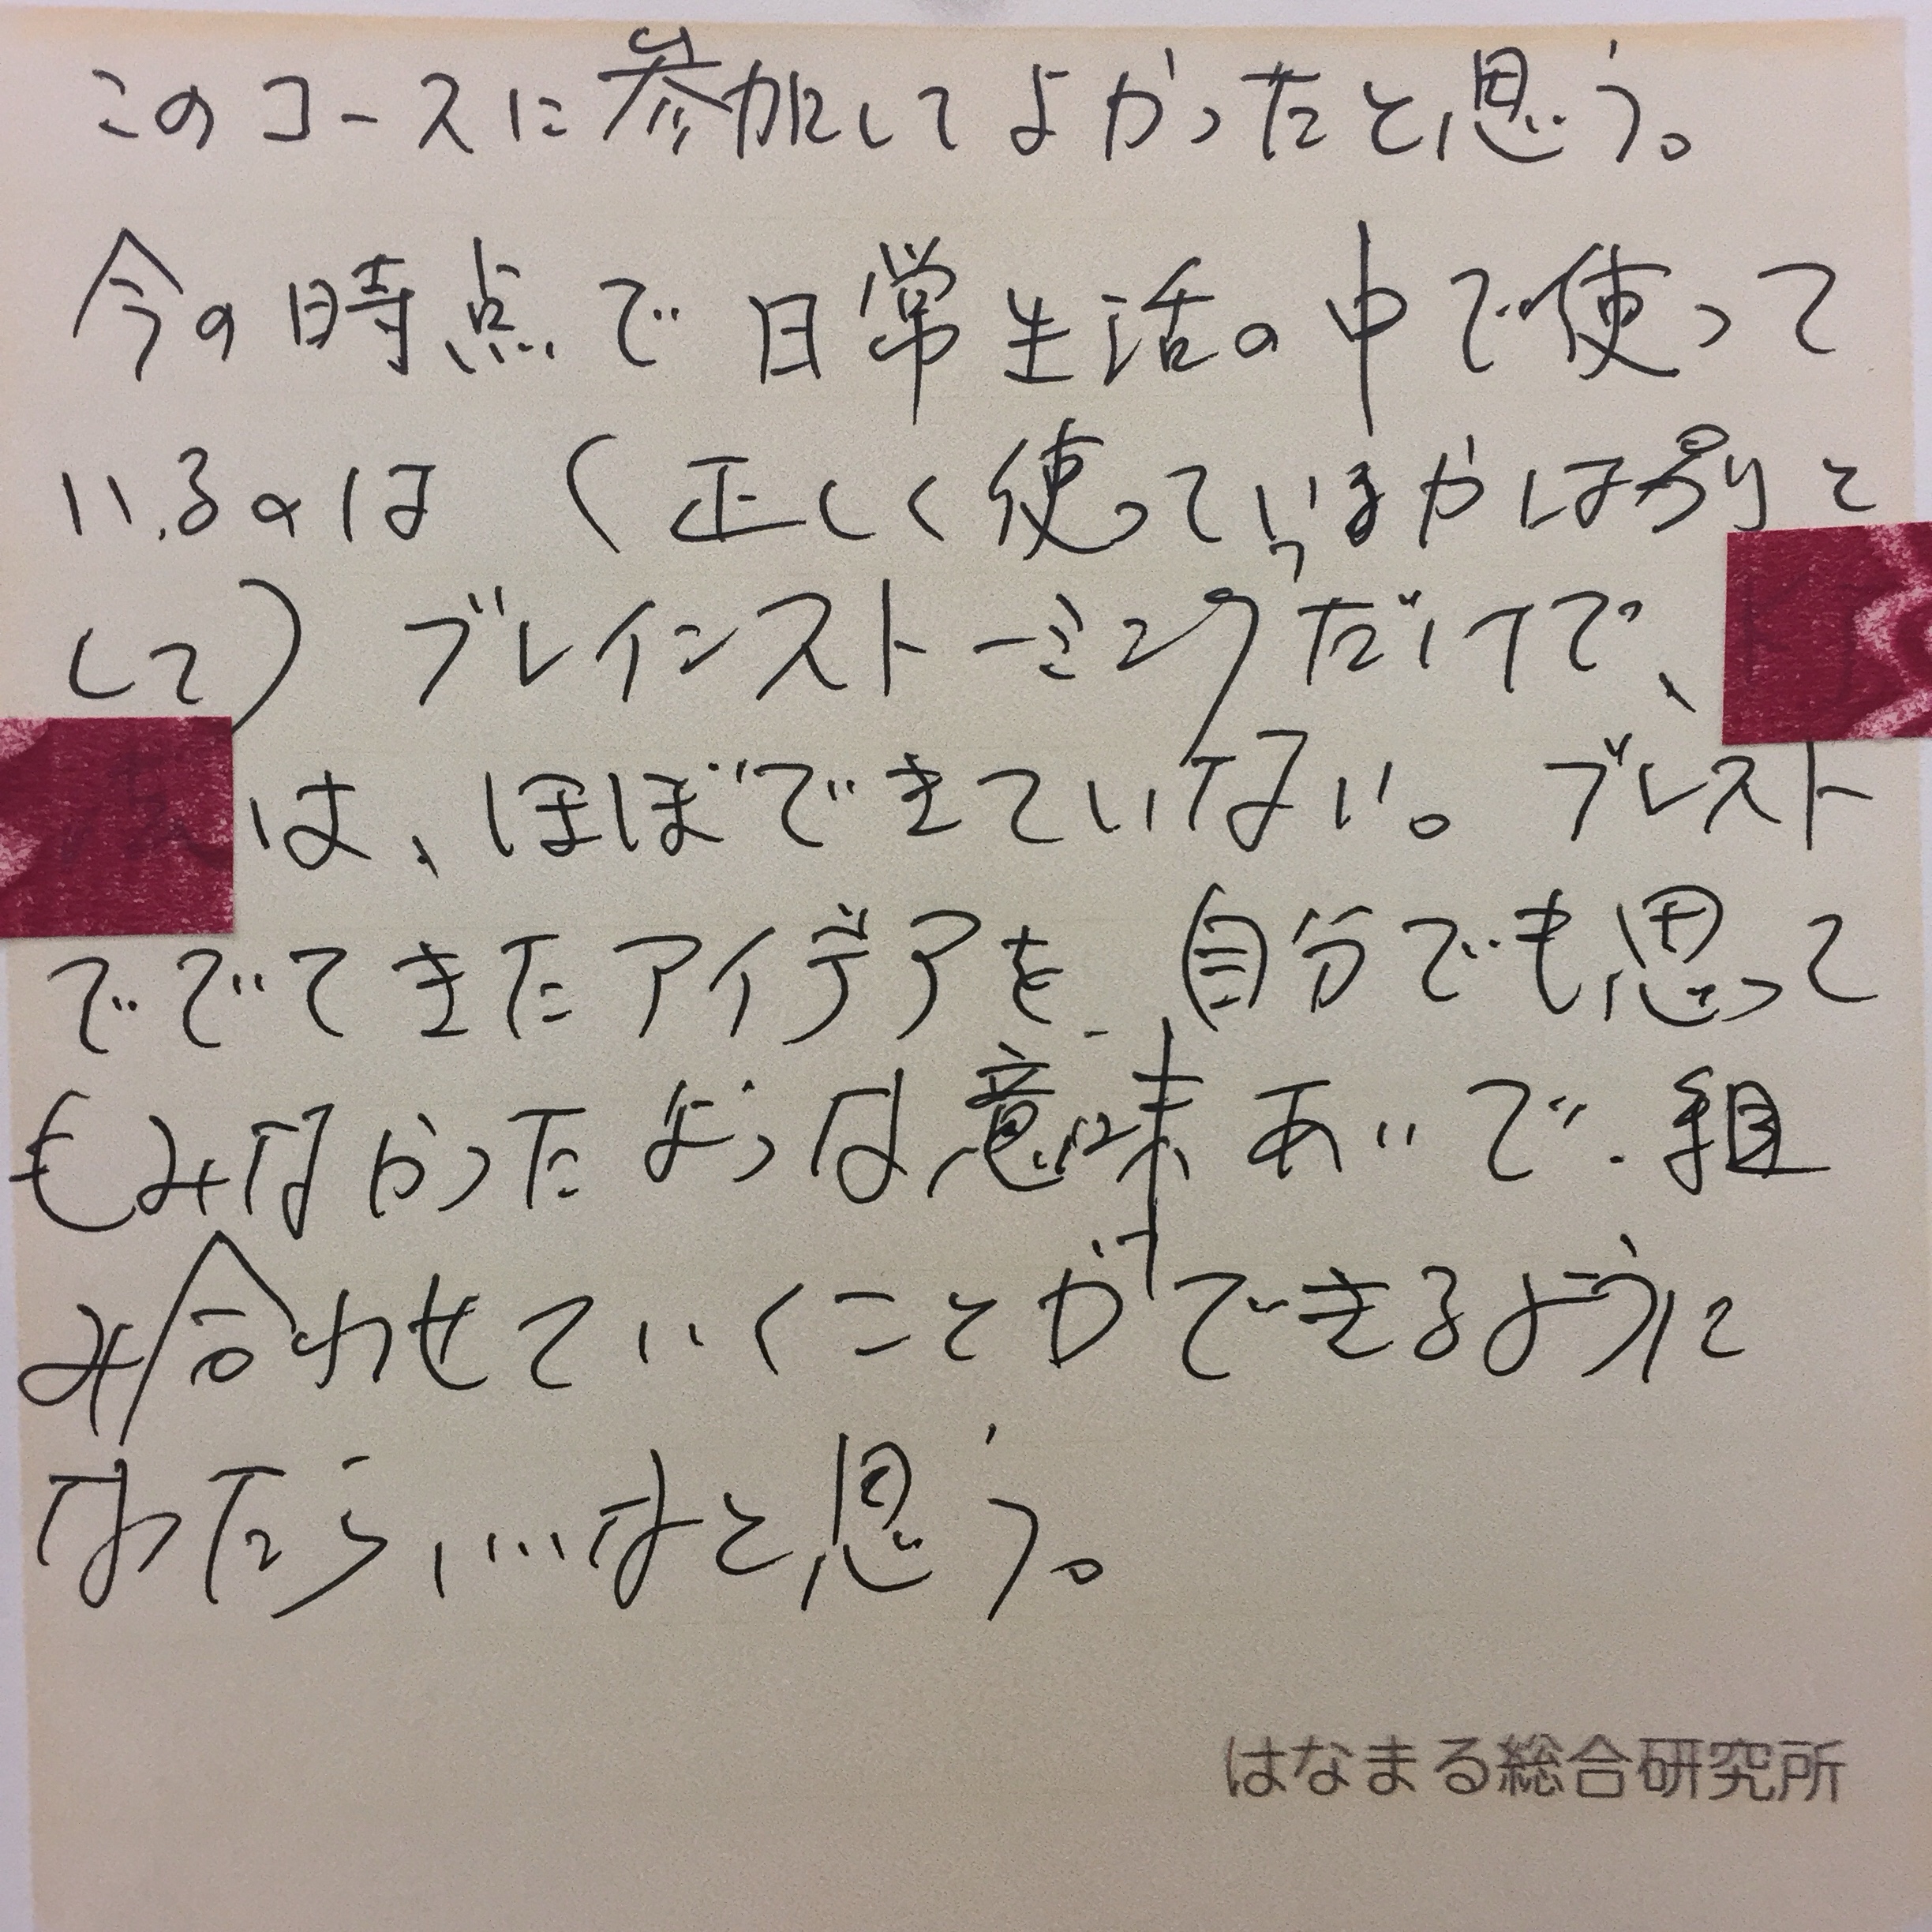 このコースに参加してよかったと思う。
今の時点で日常生活の中で使って
いるのは（正しく使っているかは別と
して）ブレインストーミングだけで、
は、ほぼできていない。ブレスト
ででてきたアイデアを、自分でも思って
もみなかったような意味あいで、組
み合わせていくことができるように
なったらいいなと思う。
はなまる総合研究所